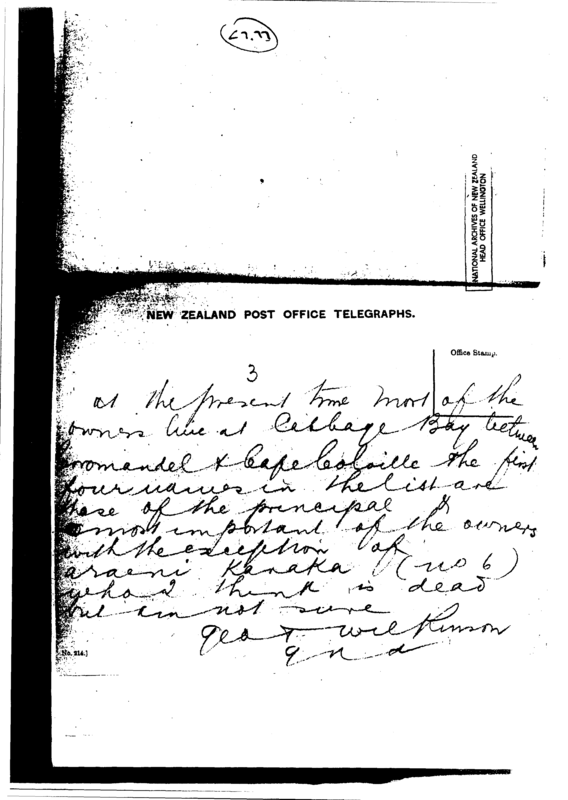 NATIONAL ARCHIVES OF NEW ZEALAND
HEAD OFFICE WELLINGTON
NEW ZEALAND POST OFFICE TELEGRAPHS.
Office Stamp.
3
at the present time most of the
owners live at Cabbage Bay between
oromandel & Cape Colville the first
four names in the list are
those of the principal &
most important of the owners
with the exception of
araeni Kanaka (no 6)
who I think is dead
but am not sure
Geo T Wilkinson
No. 214.]